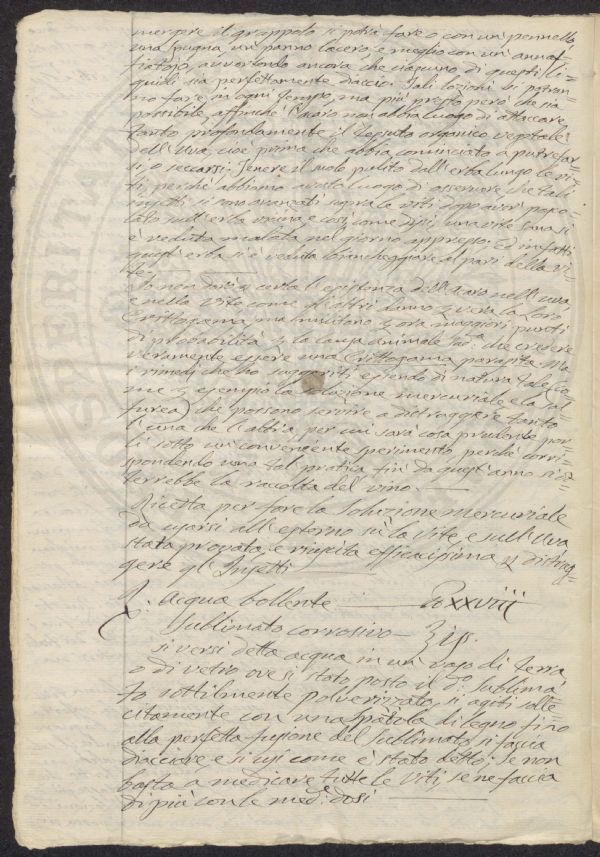 mergere il grappolo si potrà fare o con un pennello
una spugna, un panno lacero e meglio con un annaf=
fiatojo, avvertendo ancora che ciascuno di questi li=
quidi sia perfettamente diaccio. Tali lozioni si potran=
no fare in ogni tempo, ma più presto però che sia
possibile, affinché l'Acaro non abbia luogo di attaccare
tanto profondamente il tessuto organico vegetale
dell'Uva, cioè prima che abbia cominciato a putrefar
si, o seccarsi. Tenere il suolo pulito dall'erba lungo le vi=
ti, perché abbiamo avuto luogo di osservare che tali
insetti si sono avanzati sopra le viti dopo aver pasco=
lato sull'erba vicina e così come dissi una vite sana si
è veduta malata nel giorno appresso. Ed infatti
quest'erba si è veduta biancheggiare al pari della vi=
te.
Io non darò certa l'esistenza dell'Acaro nell'uva
e nella Vite come gli altri danno vera la Loro
Crittogama, ma militano ora maggiori punti
di probabilità la causa animale che credere
veramente essere una Crittogama parassita. Ma
i rimedj che ho suggeriti, essendo di natura tale (co=
me esempio la soluzione mercuriale e la sul=
furea) che possono servire a distruggere tanto
l'una che l'altra per cui sarà cosa prudente por=
li sotto un conveniente sperimento, perché corri=
spondendo una tal pratica fin da quest'anno si ot=
terrebbe la raccolta del vino.
Ricetta per fare la soluzione mercuriale
da usarsi all'esterno sù la Vite, e sull'Uva
stata provata, e riuscita efficacissima distrug=
gere gl'Insetti
Acqua bollente xxviij
Sublimato corrosivo
si versi detta acqua in un vaso di terra
o di vetro ove si stato posto il do. Sublima=
to sottilmente polverizzato, si agiti solle=
citamente con una spatola di legno fino
alla perfetta fusione del sublimato, si faccia
diacciare e si usi come è stato detto; se non
basta a medicare tutte le viti se ne faccia
di più con le med.e dosi